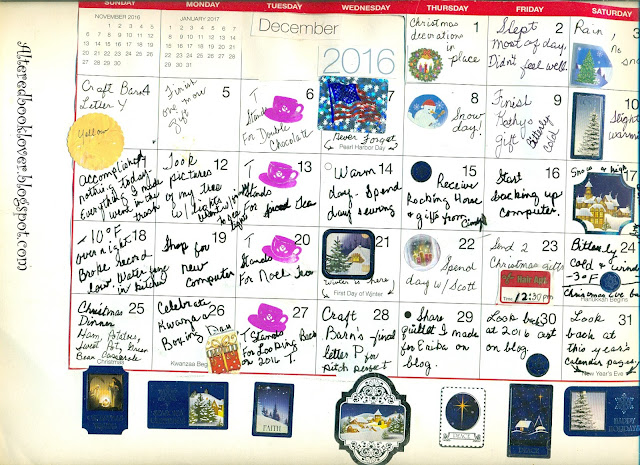 Alteredbooklover.blogspot.com
SUNDAY
MONDAY
TUESDAY
WEDNESDAY
THURSDAY
FRIDAY
SATURDAY
NOVEMBER 2016
JANUARY 2017
December
2016
1
Christmas
decorations
in
place
2
Slept
most of day.
Didn't feel well.
3
Rain,
no
4
Craft Barn
Letter Y
Yellow
5
Finish
one more
gift
6
T
Stands
For Double
Chocolate
7
Never Forget
Pearl Harbor Day
8
Snow
day!
9
Finish
Kathy's
gift
Bitterly
cold
10
Slight
warm
11
Accomplished
nothing today.
Everything I made
went in the
trash
12
Took
pictures
of my tree
w/ lights
13
T
Stands
For Spiced Tea
14
Warm
day. Spend
day sewing
15
Receive
Rocking Horse
& gifts from
16
Start
backing up
computer.
17
Snow
18
-10°F
over night
Broke record
low. Water froze
in kitchen
19
Shop for
new
computer
20
T
Stands
For Noel Tea
21
Winter is here
First Day of Winter
22
Spend
day w/ Scott
23
Send 2
Christmas gifts
Hair Appt
Time: 12:30 pm
24
Bitterly
cold & wind
-3°F
Christmas Eve
Hanukkah Begins
25
Christmas
Dinner
Ham, Potatoes,
Sweet Pot, Green
Bean Casserole
Christmas
26
Celebrate
Kwanzaa
Boxing Day
Kwanzaa Beg
27
T Stands
For Looking Back
on 2016 T.
28
Craft
Barn's final
letter P for
pitch perfect
29
Share
quilt I made
for Erika on
blog.
30
Look back
at 2016 art
on blog.
31
Look
back at
this year's
calendar pages
New Year's Eve
FAITH
PEACE
PEACE
HAPPY
HOLIDAYS